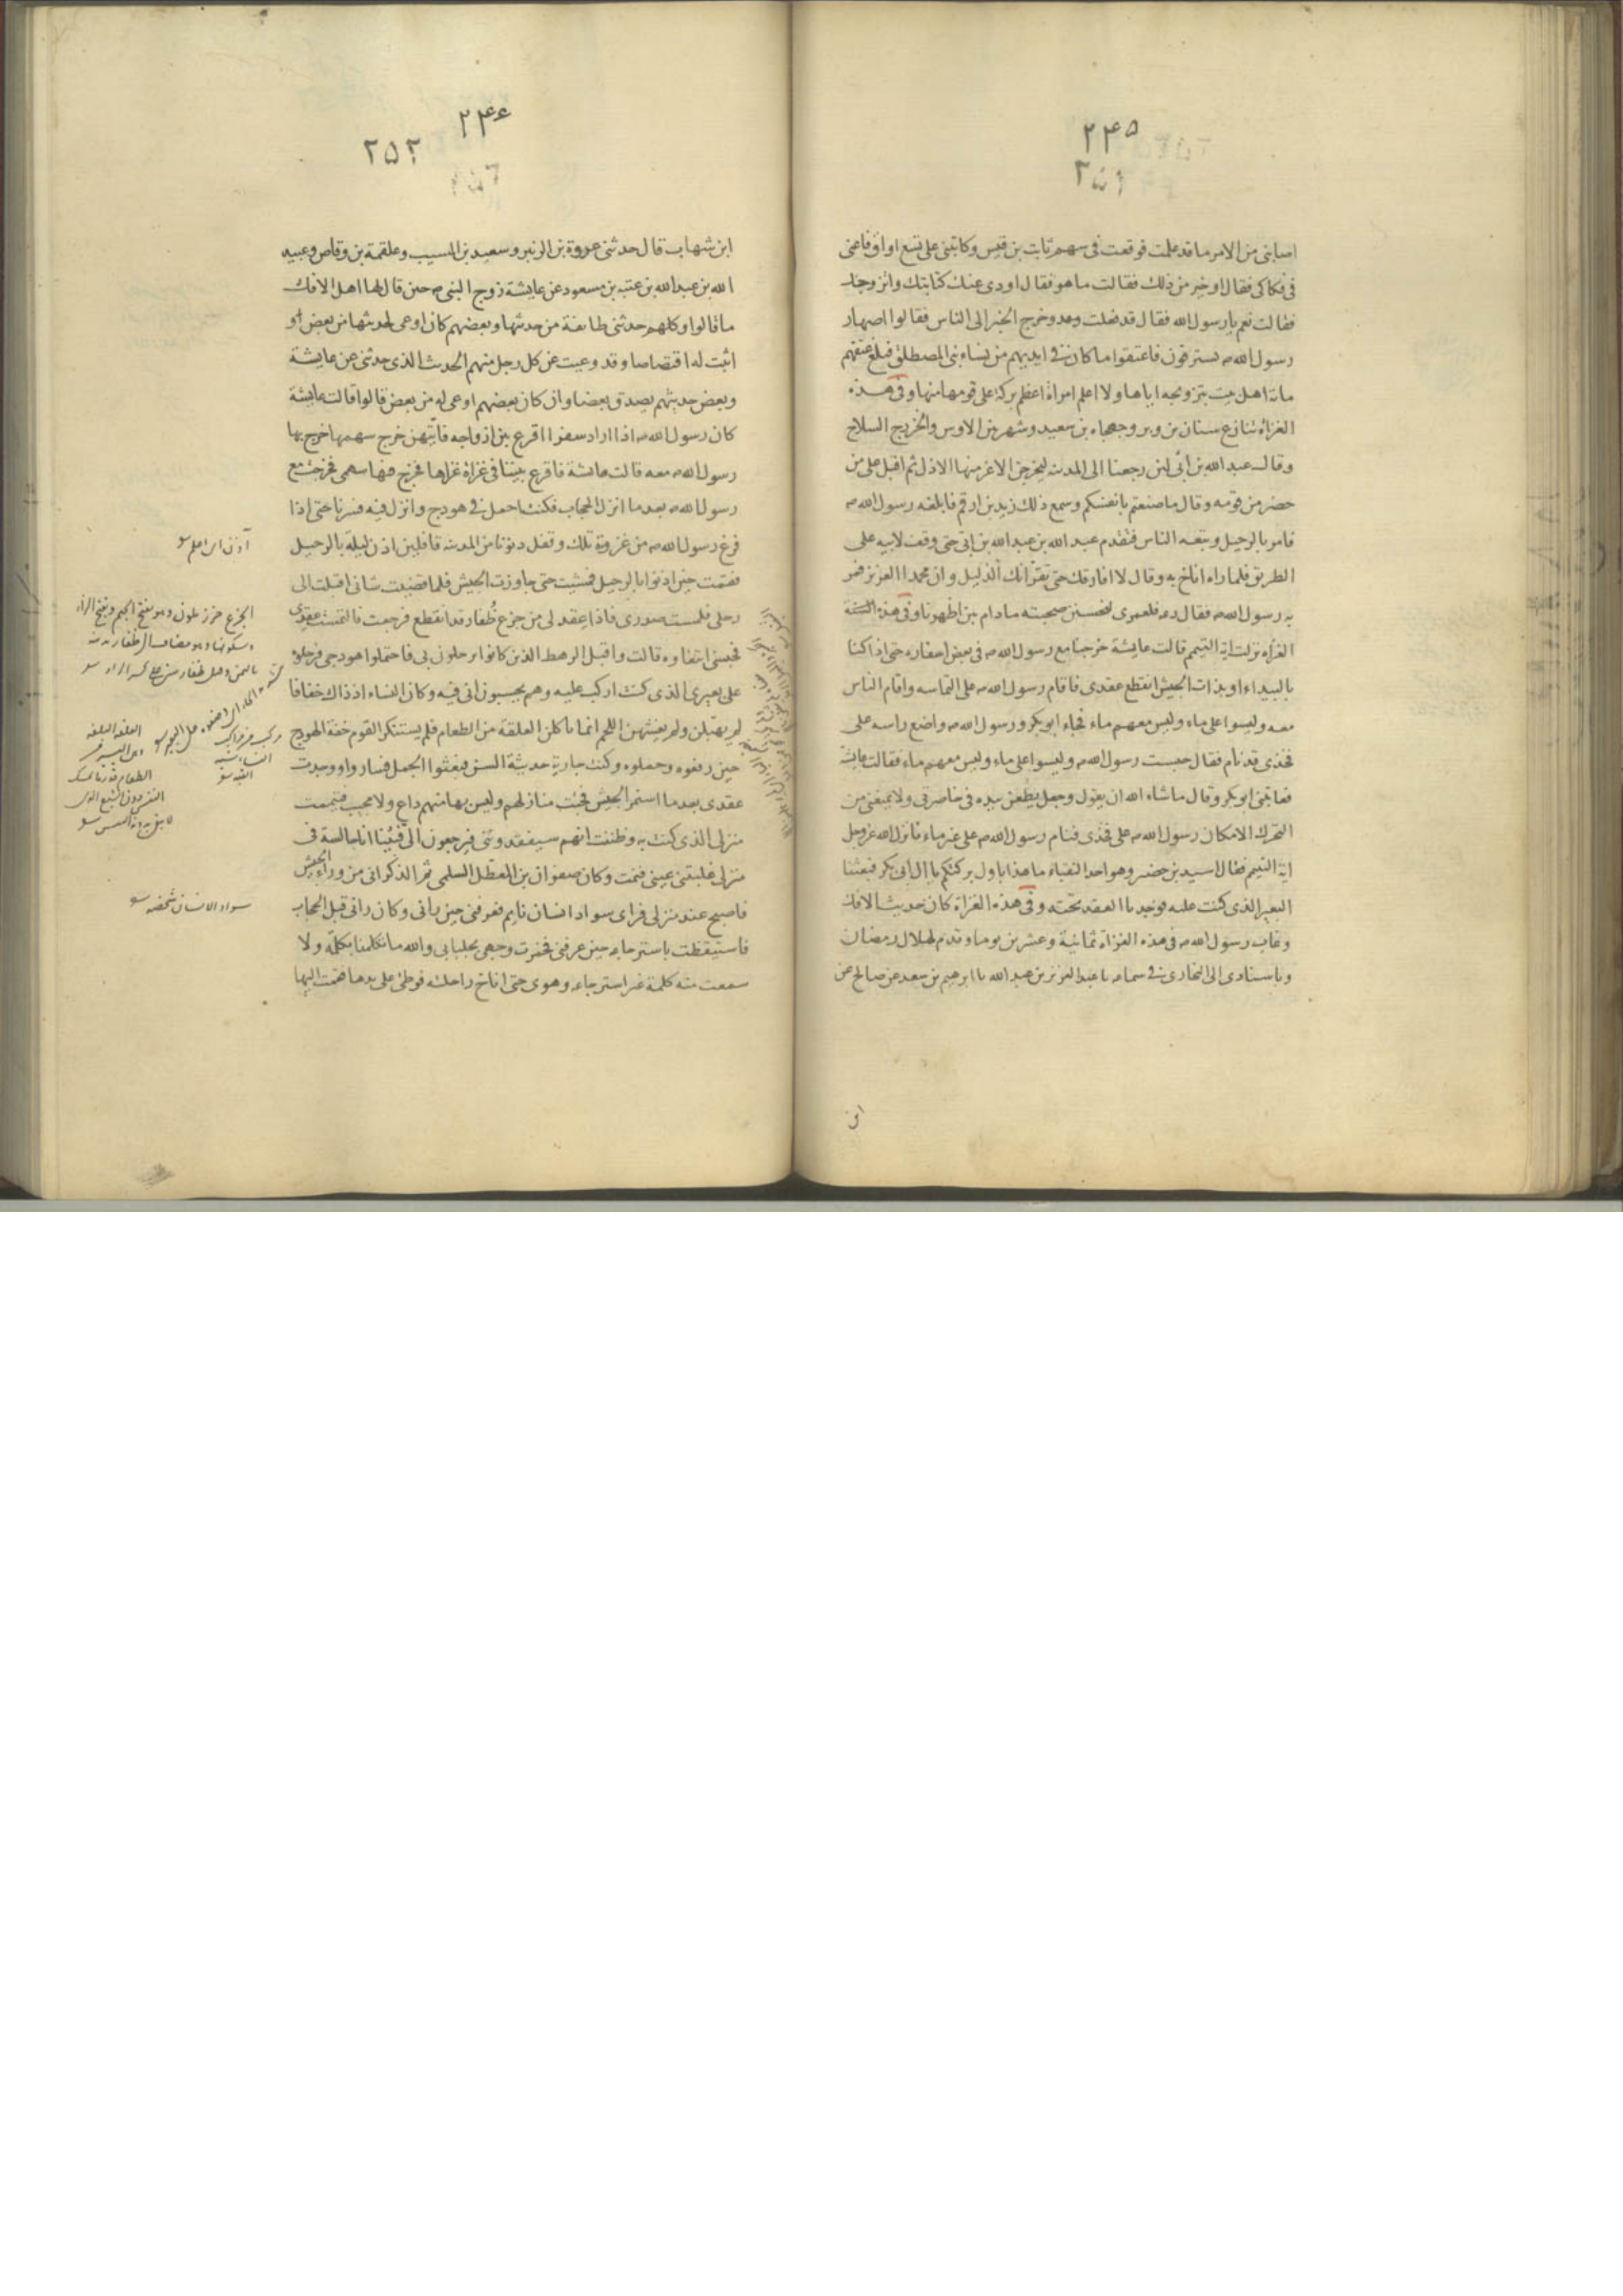 ۲۴۵
۲۵۱
اصابنی من الامر ما قد علمت فوقعت فی سهم ثابت بن قیس وکاتبنی علی تسع اواق فاعنی
فی فکاکی فقال او خیر من ذلک فقالت ما هو فقال اودی عنک کتابتک واتزوجک
فقالت نعم یا رسول الله فقال قد فعلت وخرج الخبر الی الناس فقالوا اصهار
رسول الله یسترقون فاعتقوا ما کان فی ایدیهم من نساء بنی المصطلق فبلغ عتقهم
مائة اهل بیت بتزویجه ایاها ولا اعلم امراة اعظم برکة علی قومها منها وفی هذه
الغزاة تنازع سنان بن وبر وجهجاه بن سعید وشهر بین الاوس والخزرج السلاح
وقال عبد الله بن ابی لئن رجعنا الی المدینة لیخرجن الاعز منها الاذل ثم اقبل علی من
حضر من قومه وقال ما صنعتم بانفسکم وسمع ذلک زید بن ارقم فابلغه رسول الله
فامر بالرحیل وتبعه الناس فتقدم عبد الله بن عبد الله بن ابی حتی وقف لابیه علی
الطریق فلما راه اناخ به وقال لا افارقک حتی تقر انک الذلیل وان محمدا العزیز فمر
به رسول الله فقال دعه فلعمری لنحسنن صحبته مادام بین اظهرنا وفی هذه
الغزاة نزلت ایة التیمم قالت عایشة خرجنا مع رسول الله فی بعض اسفاره حتی اذا کنا
بالبیداء او بذات الجیش انقطع عقدی فاقام رسول الله علی التماسه واقام الناس
معه ولیسوا علی ماء ولیس معهم ماء فجاء ابو بکر ورسول الله واضع راسه علی
فخذی قد نام فقال حبست رسول الله ولیسوا علی ماء ولیس معهم ماء فقالت عایشة
فعاتبنی ابو بکر وقال ما شاء الله ان یقول وجعل یطعن بیده فی خاصرتی ولا یمنعنی من
التحرک الا مکان رسول الله علی فخذی فنام رسول الله علی غیر ماء فانزل الله عز وجل
ایة التیمم فقال اسید بن حضیر وهو احد النقباء ما هذا باول برکتکم یا ال ابی بکر فبعثنا
البعیر الذی کنت علیه فوجدنا العقد تحته وفی هذه الغزاة کان حدیث الافک
وغاب رسول الله فی هذه الغزاة ثمانیة وعشرین یوما وقدم لهلال رمضان
وباسنادی الی البخاری فی سماعه نا عبد العزیز بن عبد الله نا ابرهیم بن سعد عن صالح عن
ابن
۲۴۶
۲۵۲
ابن شهاب قال حدثنی عروة بن الزبیر وسعید بن المسیب وعلقمة بن وقاص وعبید
الله بن عبد الله بن عتبة بن مسعود عن عایشة زوج النبی حین قال لها اهل الافک
ما قالوا وکلهم حدثنی طائفة من حدیثها وبعضهم کان اوعی لحدیثها من بعض او
اثبت له اقتصاصا وقد وعیت عن کل رجل منهم الحدیث الذی حدثنی عن عایشة
وبعض حدیثهم یصدق بعضا وان کان بعضهم اوعی له من بعض قالوا قالت عایشة
کان رسول الله اذا اراد سفرا اقرع بین ازواجه فایتهن خرج سهمها خرج بها
رسول الله معه قالت عایشة فاقرع بیننا فی غزاة غزاها فخرج فیها سهمی فخرجت مع
رسول الله بعد ما انزل الحجاب فکنت احمل فی هودج وانزل فیه فسرنا حتی اذا
فرغ رسول الله من غزوة تلک وقفل دنونا من المدینة قافلین اذن لیلة بالرحیل
فقمت حین اذنوا بالرحیل فمشیت حتی جاوزت الجیش فلما قضیت شانی اقبلت الی
رحلی فلمست صدری فاذا عقد لی من جزع ظفار قد انقطع فرجعت فالتمست عقدی
فحبسنی ابتغاوه قالت واقبل الرهط الذین کانوا یرحلون بی فاحتملوا هودجی فرحلوه
علی بعیری الذی کنت ارکب علیه وهم یحسبون انی فیه وکان النساء اذ ذاک خفافا
لم یهبلن ولم یغشهن اللحم انما یاکلن العلقة من الطعام فلم یستنکر القوم خفة الهودج
حین رفعوه وحملوه وکنت جاریة حدیثة السن فبعثوا الجمل فساروا ووجدت
عقدی بعد ما استمر الجیش فجئت منازلهم ولیس بها منهم داع ولا مجیب فتیممت
منزلی الذی کنت به وظننت انهم سیفقدوننی فیرجعون الی فبینا انا جالسة فی
منزلی غلبتنی عینی فنمت وکان صفوان بن المعطل السلمی ثم الذکوانی من وراء الجیش
فاصبح عند منزلی فرای سواد انسان نایم فعرفنی حین رانی وکان رانی قبل الحجاب
فاستیقظت باسترجاعه حین عرفنی فخمرت وجهی بجلبابی والله ما تکلمنا بکلمة ولا
سمعت منه کلمة غیر استرجاعه وهوی حتی اناخ راحلته فوطئ علی یدها فقمت الیها
آذن ای اعلم
الجزع خرز ملون وهو بفتح الجیم وبفتح الزاء
وسکونها وهو مضاف الی ظفار مدینة
سواد الانسان شخصه